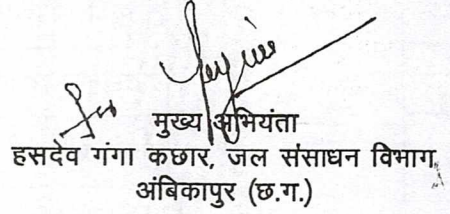 मुख्य अभियंता
हसदेव गंगा कछार, जल संसाधन विभाग
अंबिकापुर (छ.ग.)